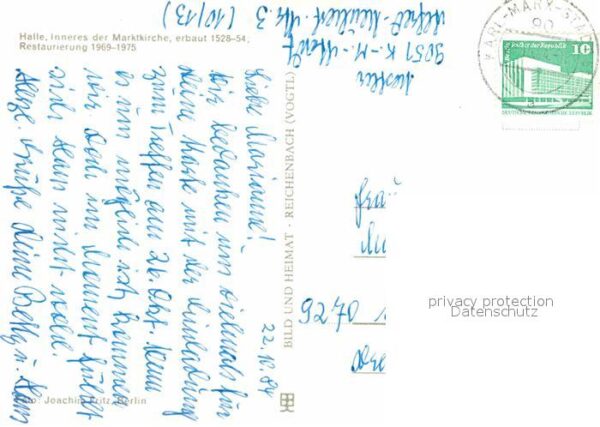 Halle, Inneres der Marktkirche, erbaut 1528-54;
Restaurierung 1969-1975
9051 K.-M.-Stadt
Alfred-Neubert-Str. 3 (10/13)
22.10.84
Liebe Marianne!
Wir bedanken uns vielmals für
deine Karte mit der Einladung
zum Treffen am 26. Okt. Wenn
es uns möglich ist, kommen
wir. Doch im Moment fühlt
sich Hans nicht wohl.
Herzl. Grüße Deine Betty u. Hans
Foto: Joachim Fritz, Berlin
BILD UND HEIMAT · REICHENBACH (VOGTL)
KARL-MARX-STADT
90
Palast der Republik
10
DEUTSCHE DEMOKRATISCHE REPUBLIK
9270
privacy protection
Datenschutz